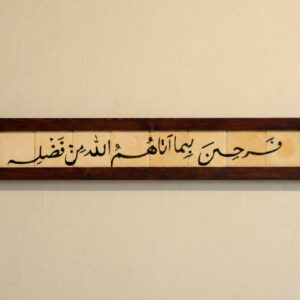 فرحین بما آتاهُمُ الله مِنْ فَضْلِه